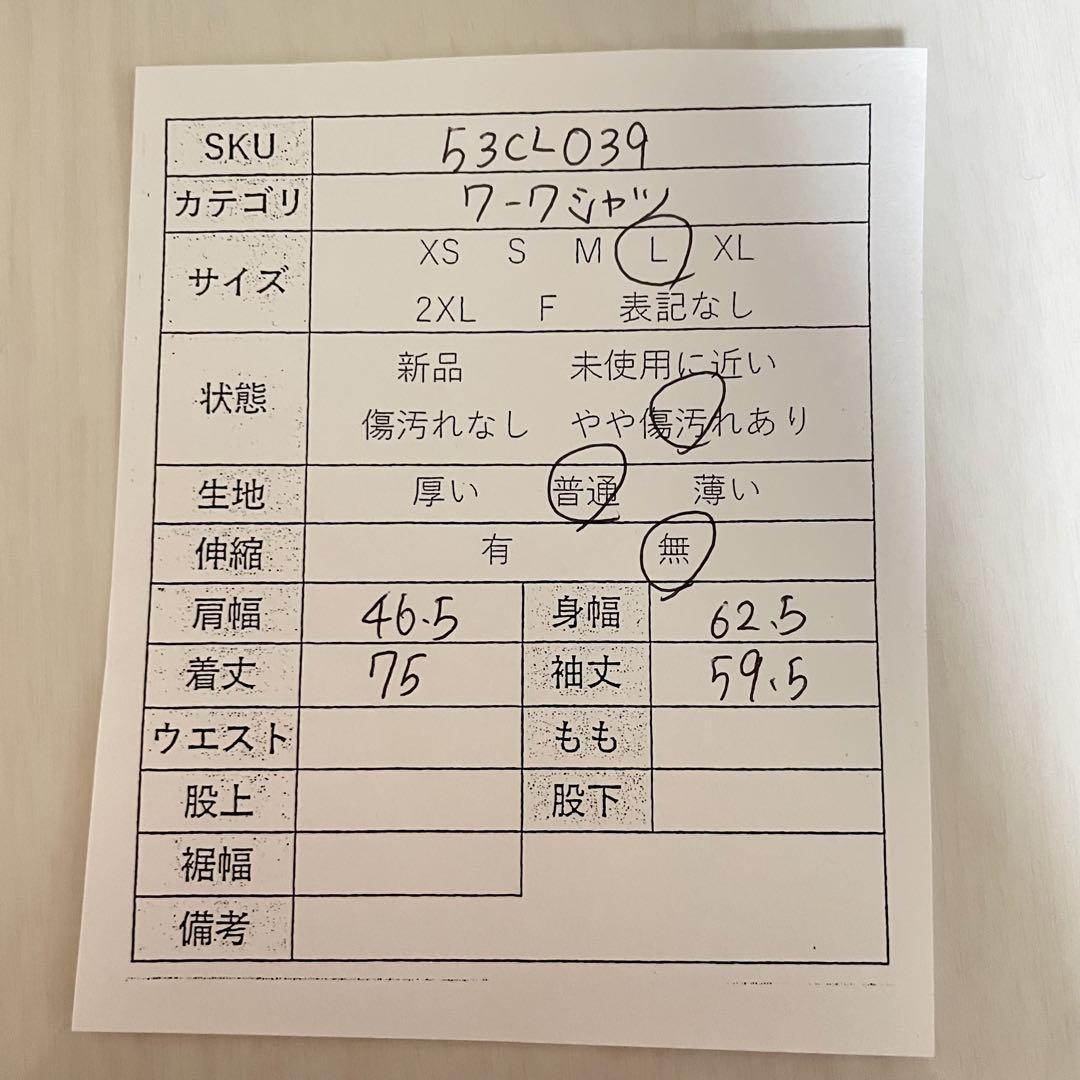 SKU 53CL039
カテゴリ ワークシャツ
サイズ XS S M L XL
2XL F 表記なし
状態 新品 未使用に近い
傷汚れなし やや傷汚れあり
生地 厚い 普通 薄い
伸縮 有 無
肩幅 46.5 身幅 62.5
着丈 75 袖丈 59.5
ウエスト もも
股上 股下
裾幅
備考